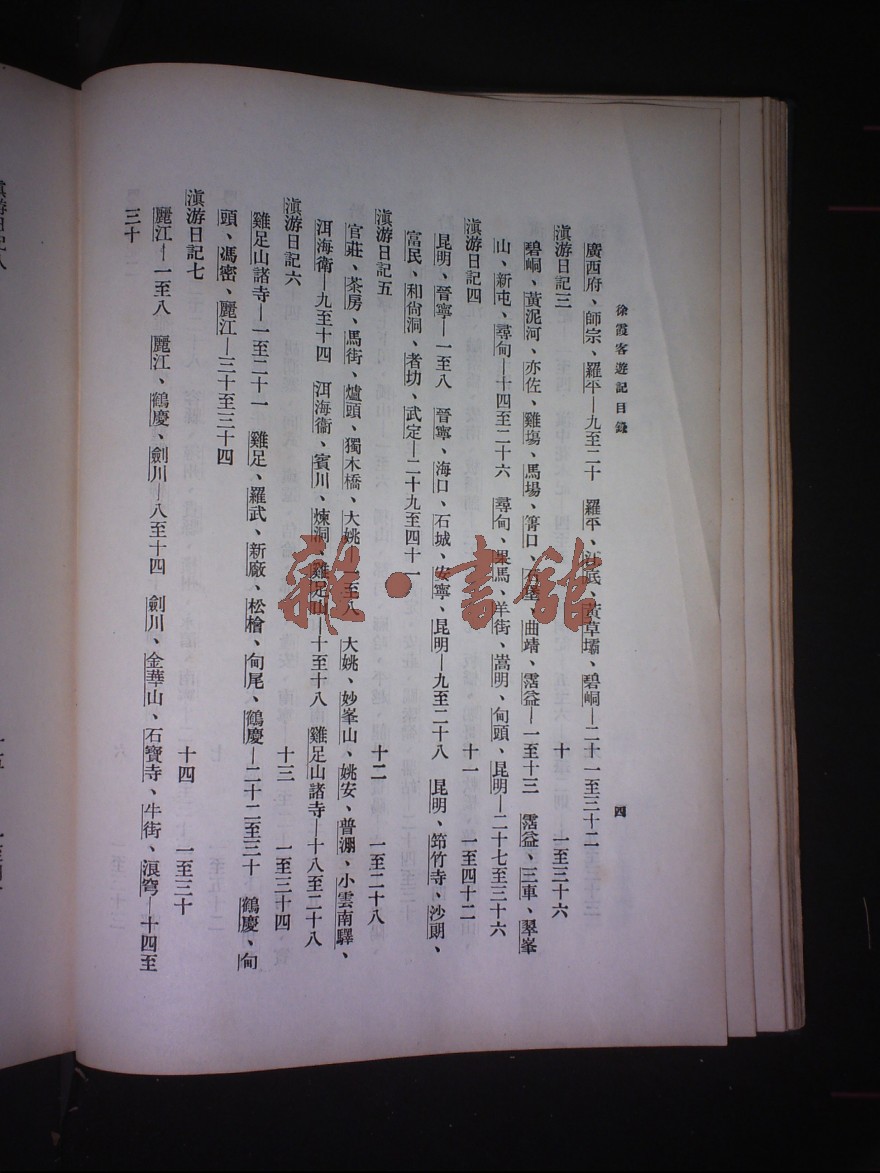 徐霞客遊記目錄
四
廣西府、師宗、羅平—九至二十　羅平、江底、黃草壩、碧峒—二十一至三十二
滇游日記三　十　一至三十六
碧峒、黃泥河、亦佐、雞場、馬場、箐口、石堡、曲靖、霑益—一至十三　霑益、三車、翠峯
山、新屯、尋甸—十四至二十六　尋甸、果馬、羊街、嵩明、甸頭、昆明—二十七至三十六
滇游日記四　十一　一至四十二
昆明、晉寧—一至八　晉寧、海口、石城、安寧、昆明—九至二十八　昆明、筇竹寺、沙朗、
富民、和尙洞、者㘰、武定—二十九至四十一
滇游日記五　十二　一至二十八
官莊、茶房、馬街、爐頭、獨木橋、大姚—一至八　大姚、妙峯山、姚安、普淜、小雲南驛、
洱海衛—九至十四　洱海衞、賓川、煉洞、雞足山—十至十八　雞足山諸寺—十八至二十八
滇游日記六　十三　一至三十四
雞足山諸寺—一至二十一　雞足、羅武、新廠、松檜、甸尾、鶴慶—二十二至三十　鶴慶、甸
頭、馮密、麗江—三十至三十四
滇游日記七　十四　一至三十
麗江—一至八　麗江、鶴慶、劍川—八至十四　劍川、金華山、石寶寺、牛街、浪穹—十四至
三十
滇游日記八
雜·書館